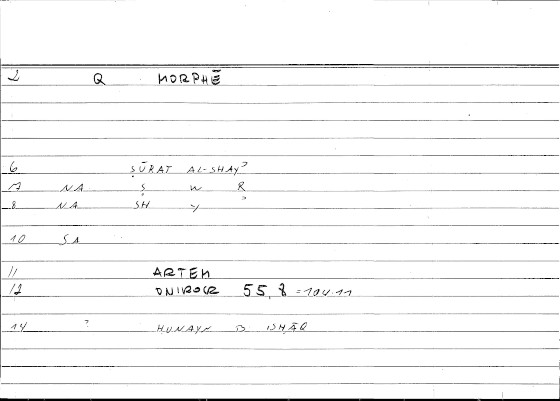 2 Q MORPHĒ
6 ṢŪRAT AL-SHAYʾ
7 NA Ṣ W R
8 NA SH Y ʾ
10 SA
11 ARTEM
12 ONIROCR 55,8 = 104.11
14 ? ḤUNAYN B ISḤĀQ